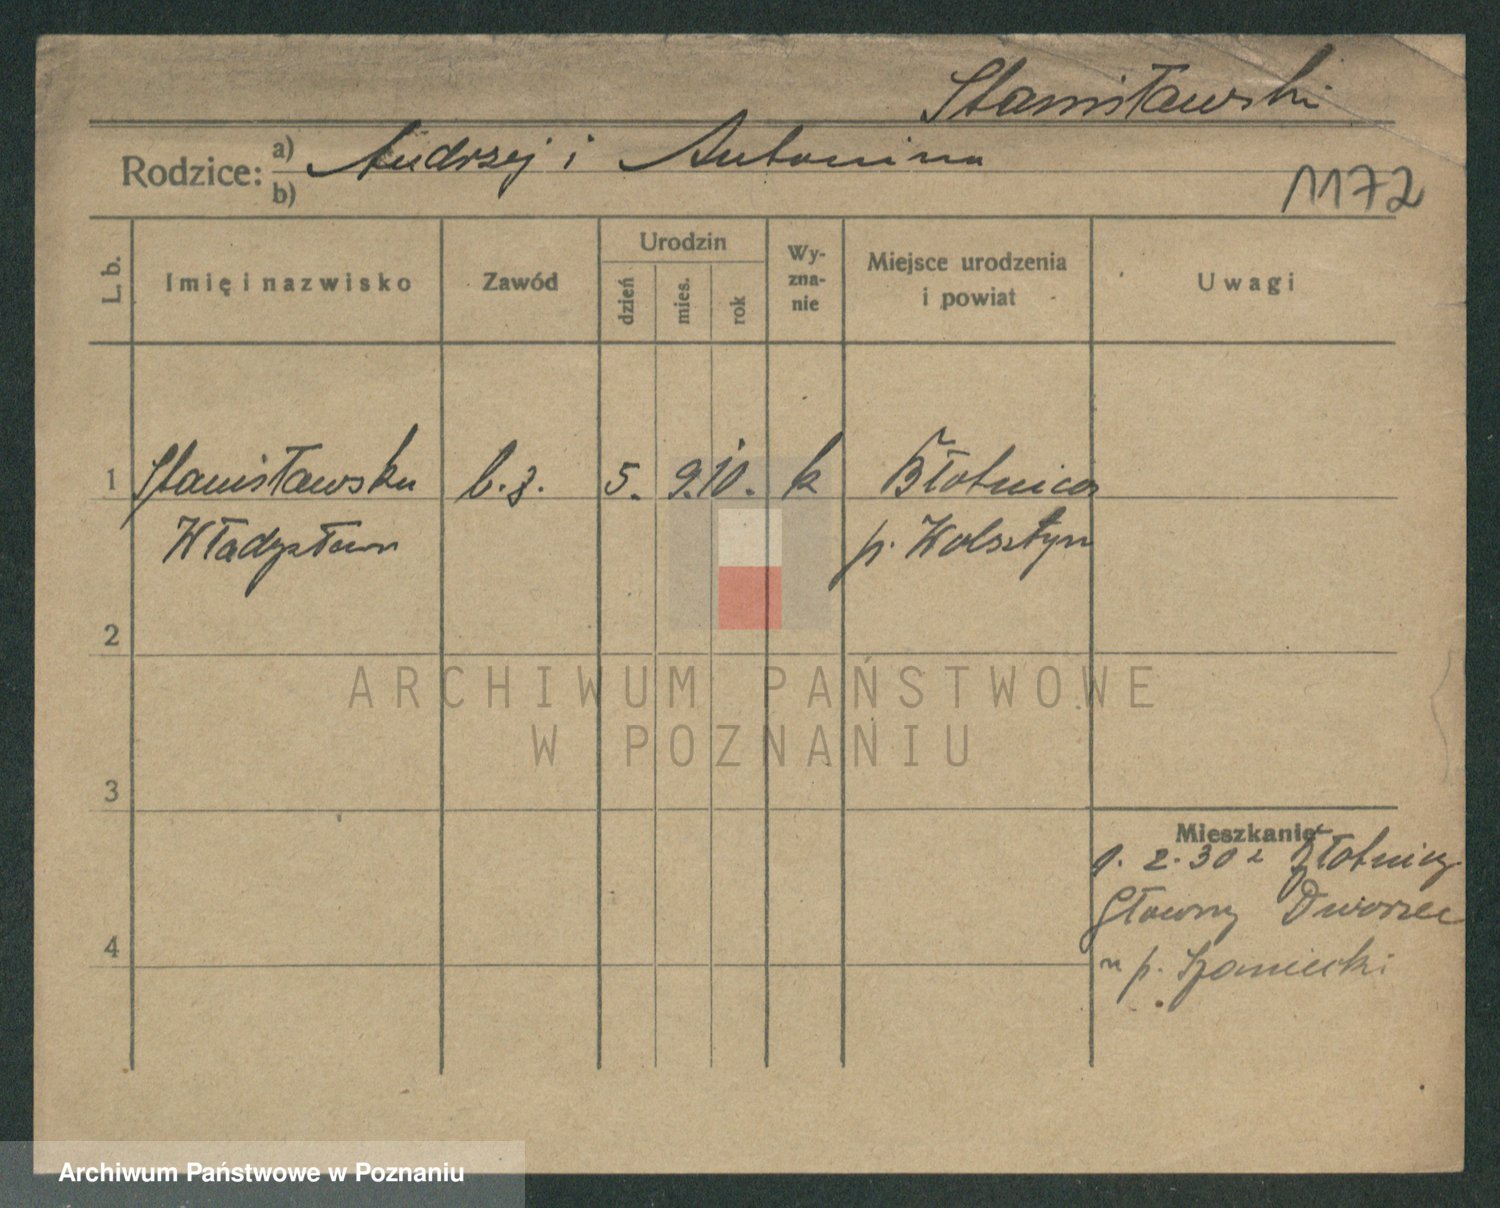 Stanisławski
Rodzice: a) Andrzej i Antonina
b)
1172
L. b. Imię i nazwisko Zawód Urodzin dzień mies. rok Wy-zna-nie Miejsce urodzenia i powiat Uwagi
1 Stanisławska b. z. 5. 9. 10. k Błotnica
Władysława p. Wolsztyn
2
ARCHIWUM PAŃSTWOWE
W POZNANIU
3
Mieszkanie
1. 2. 30 z Błotnicy
Główny Dworzec
4
p. Szaniecki
Archiwum Państwowe w Poznaniu